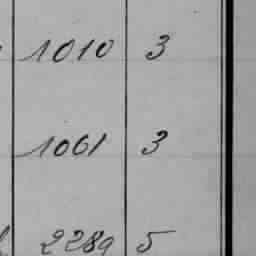 1010 3
1061 3
2289 5